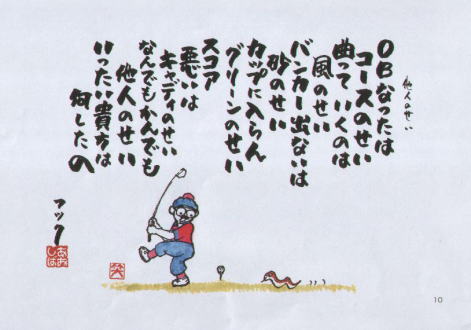 他人のせい
OBなったは
コースのせい
曲って いくのは
風のせい
バンカー出ないは
砂のせい
カップに入らん
グリーンのせい
スコア
悪いは
キャディのせい
なんでもかんでも
他人のせい
いったい貴方は
何したの
マック
10